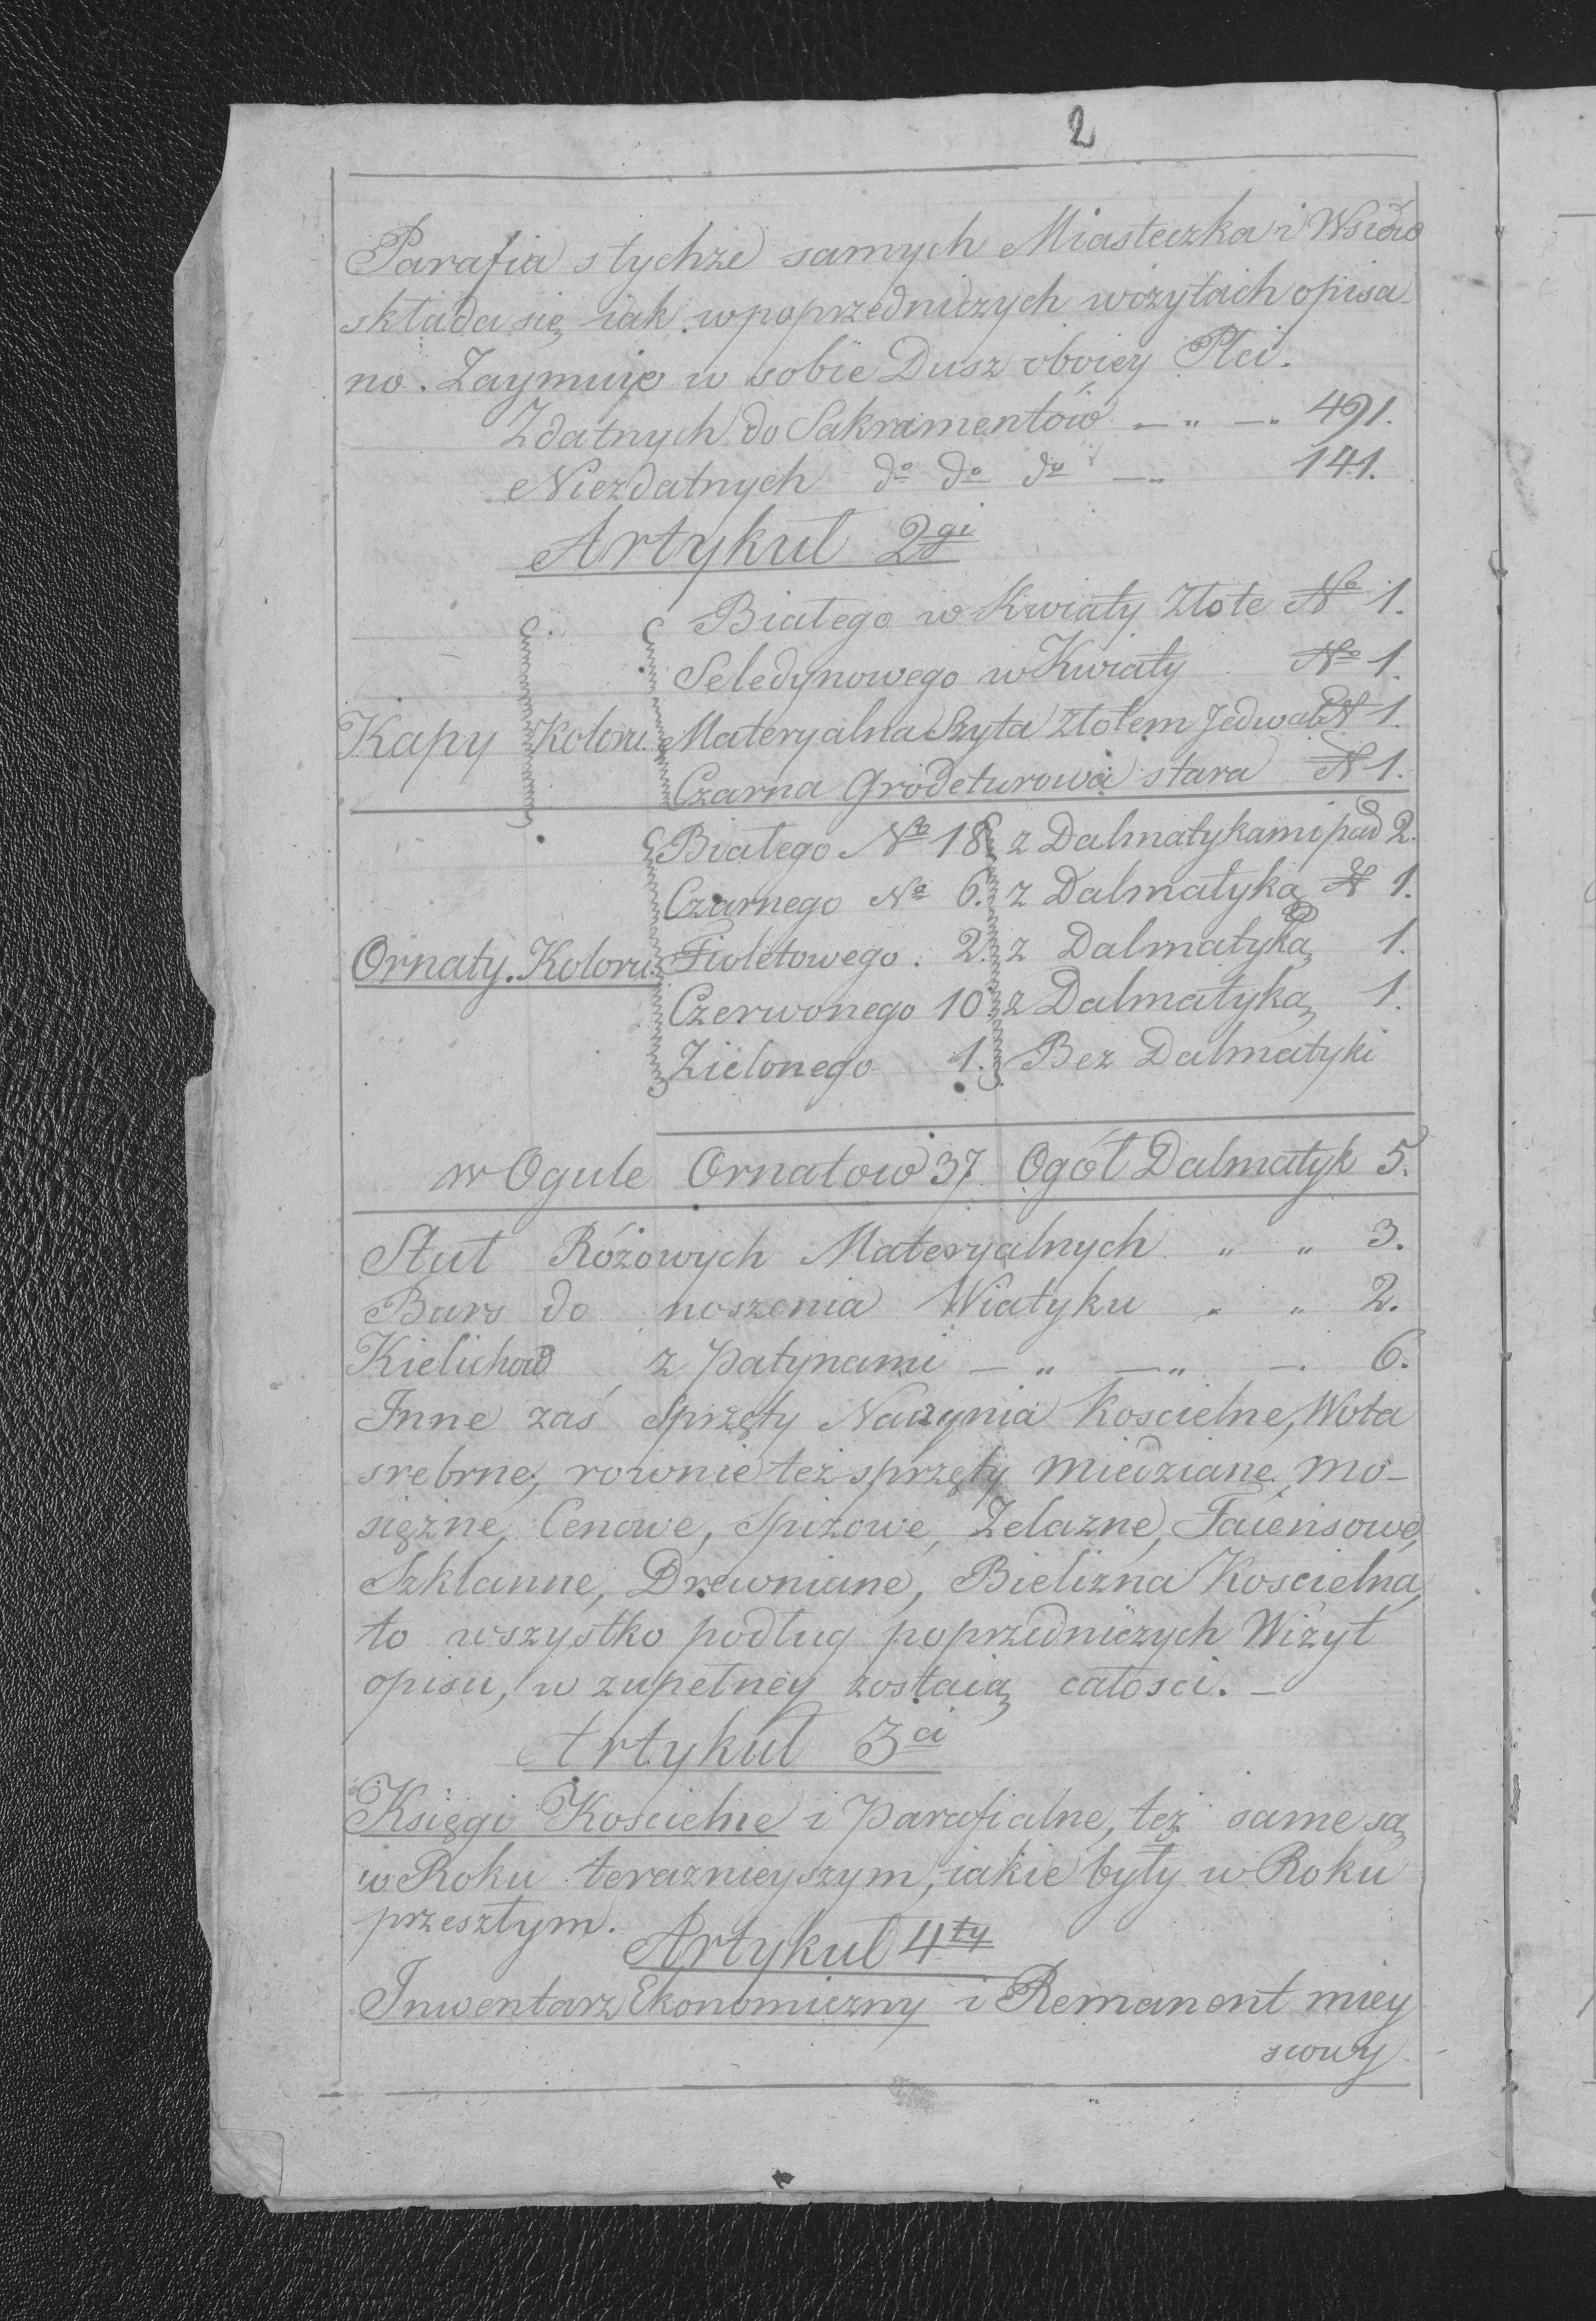 2
Parafia s tychże samych Miasteczka i Wsiów
składa się iak w poprzedniczych wizytach opisa-
no. Zaymuie w sobie Dusz oboiey Płci.
Zdatnych do Sakramentów — „ — „ 491.
Niezdatnych do do do — „ 141.
Artykuł 2gi
Białego w Kwiaty Złote No 1.
Seledynowego w Kwiaty No 1.
Kapy Koloru. Materyalna Szyta złotem Jedwab N 1.
Czarna Grodeturowa stara N 1.
Białego No 18 z Dalmatykami pad 2.
Czarnego No 6. z Dalmatyką N 1.
Ornaty. Koloru. Fioletowego. 2. z Dalmatyką 1.
Czerwonego 10. z Dalmatyką 1.
Zielonego 1. Bez Dalmatyki
w Ogule Ornatow 37. Ogół Dalmatyk 5.
Stuł Różowych Materyalnych „ „ 3.
Burs do noszenia Wiatyku „ „ 2.
Kielichow z patynami — „ — „ —. 6.
Inne zaś Sprzęty Naczynia Koscielne, Wota
srebrne, rownie też sprzęty miedziane, mo-
siężne, Cenowe, Spiżowe, Zelazne, Faiensowe,
Szklanne, Drewniane, Bielizna Koscielna,
to wszystko podług poprzedniczych Wizyt
opisu, w zupełney zostaią całosci. —
Artykuł 3ci
Księgi Koscielne i Parafialne, też same są
w Roku teraznieyszym, iakie były w Roku
przeszłym.
Artykuł 4ty
Inwentarz Ekonomiczny i Remanent miey
scowy